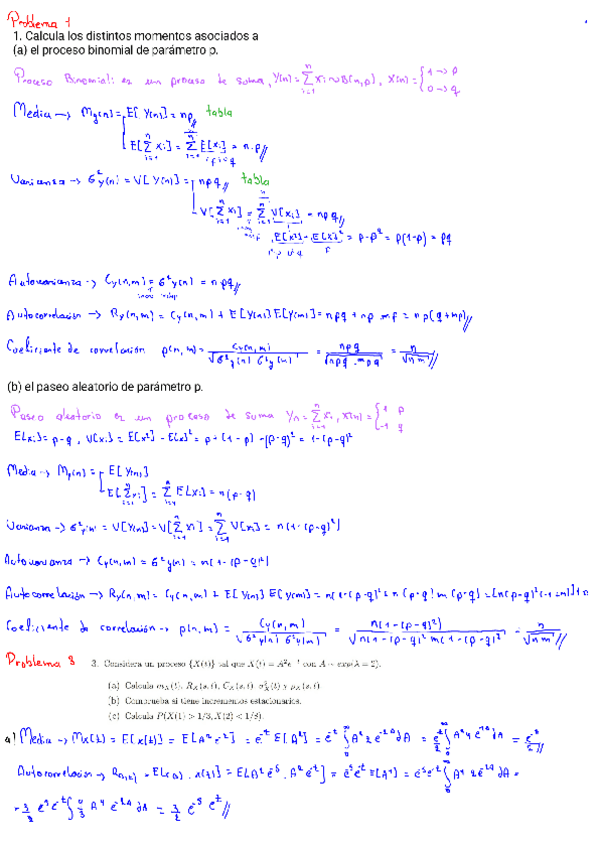 Problema 1
1. Calcula los distintos momentos asociados a
(a) el proceso binomial de parámetro p.
Proceso Binomial: es un proceso de suma, Y(n) = Σ Xi ~ B(n,p), X(n) = { 1 → p
0 → q
Media → My(n) = E[Y(n)] = np // tabla
E[Σ Xi] = Σ E[Xi] = n·p //
Varianza → σ²y(n) = V[Y(n)] = npq // tabla
V[Σ Xi] = Σ V[Xi] = npq //
E[X²] - E[X]² = p - p² = p(1-p) = pq
Autocovarianza → Cy(n,m) = σ²y(n) = npq //
Autocorrelación → Ry(n,m) = Cy(n,m) + E[Y(n)] E[Y(m)] = npq + np mp = np(q+mp) //
Coeficiente de correlación ρ(n,m) = Cy(n,m) / √σ²y(n) σ²y(m) = npq / √npq·mpq = n / √nm //
(b) el paseo aleatorio de parámetro p.
Paseo aleatorio es un proceso de suma Yn = Σ Xi, X(n) = { 1 p
-1 q
E[Xi] = p-q, V[Xi] = E[X²] - E[X]² = p + (1-p) - (p-q)² = 1-(p-q)²
Media → My(n) = E[Y(n)]
E[Σ Xi] = Σ E[Xi] = n(p-q)
Varianza → σ²y(n) = V[Y(n)] = V[Σ Xi] = Σ V[Xi] = n(1-(p-q)²)
Autocovarianza → Cy(n,m) = σ²y(n) = n(1-(p-q)²)
Autocorrelación → Ry(n,m) = Cy(n,m) + E[Y(n)] E[Y(m)] = n(1-(p-q)²) + n(p-q) m(p-q)
Coeficiente de correlación → ρ(n,m) = Cy(n,m) / √σ²y(n) σ²y(m) = n(1-(p-q)²) / √n(1-(p-q)²) m(1-(p-q)²) = n / √nm //
Problema 3
3. Considera un proceso {X(t)} tal que X(t) = A²e⁻ᵗ con A ~ exp(λ = 2).
(a) Calcula mX(t), RX(s,t), CX(s,t), σ²X(t) y ρX(s,t).
(b) Comprueba si tiene incrementos estacionarios.
(c) Calcula P(X(1) > 1/3, X(2) < 1/8).
a) Media → Mx(t) = E[X(t)] = E[A² e⁻ᵗ] = e⁻ᵗ E[A²]
Autocorrelación →